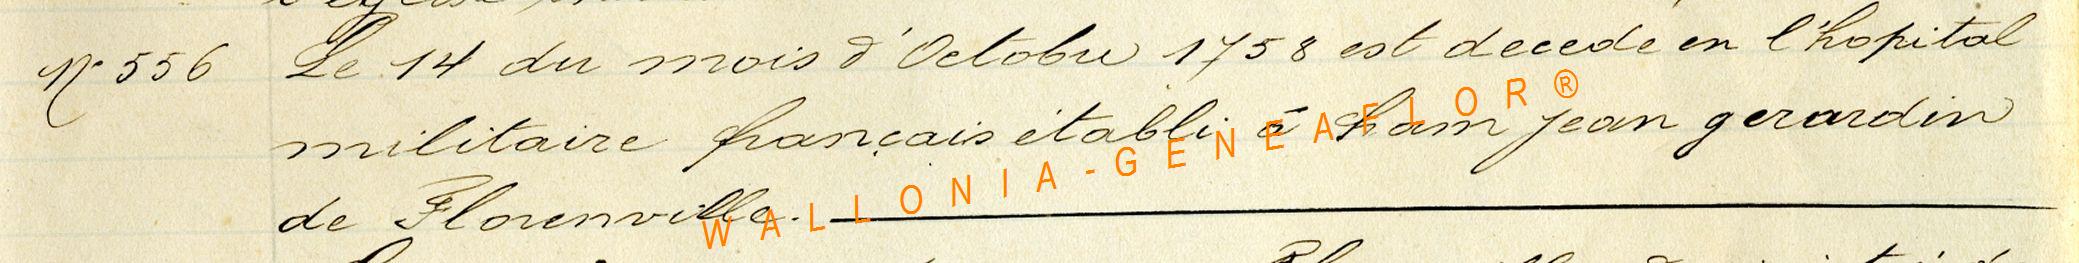 N° 556 Le 14 du mois d'Octobre 1758 est decede en l'hopital
militaire français établi à ham jean gerardin
de Florenville.
WALLONIA-GENEAFLOR®